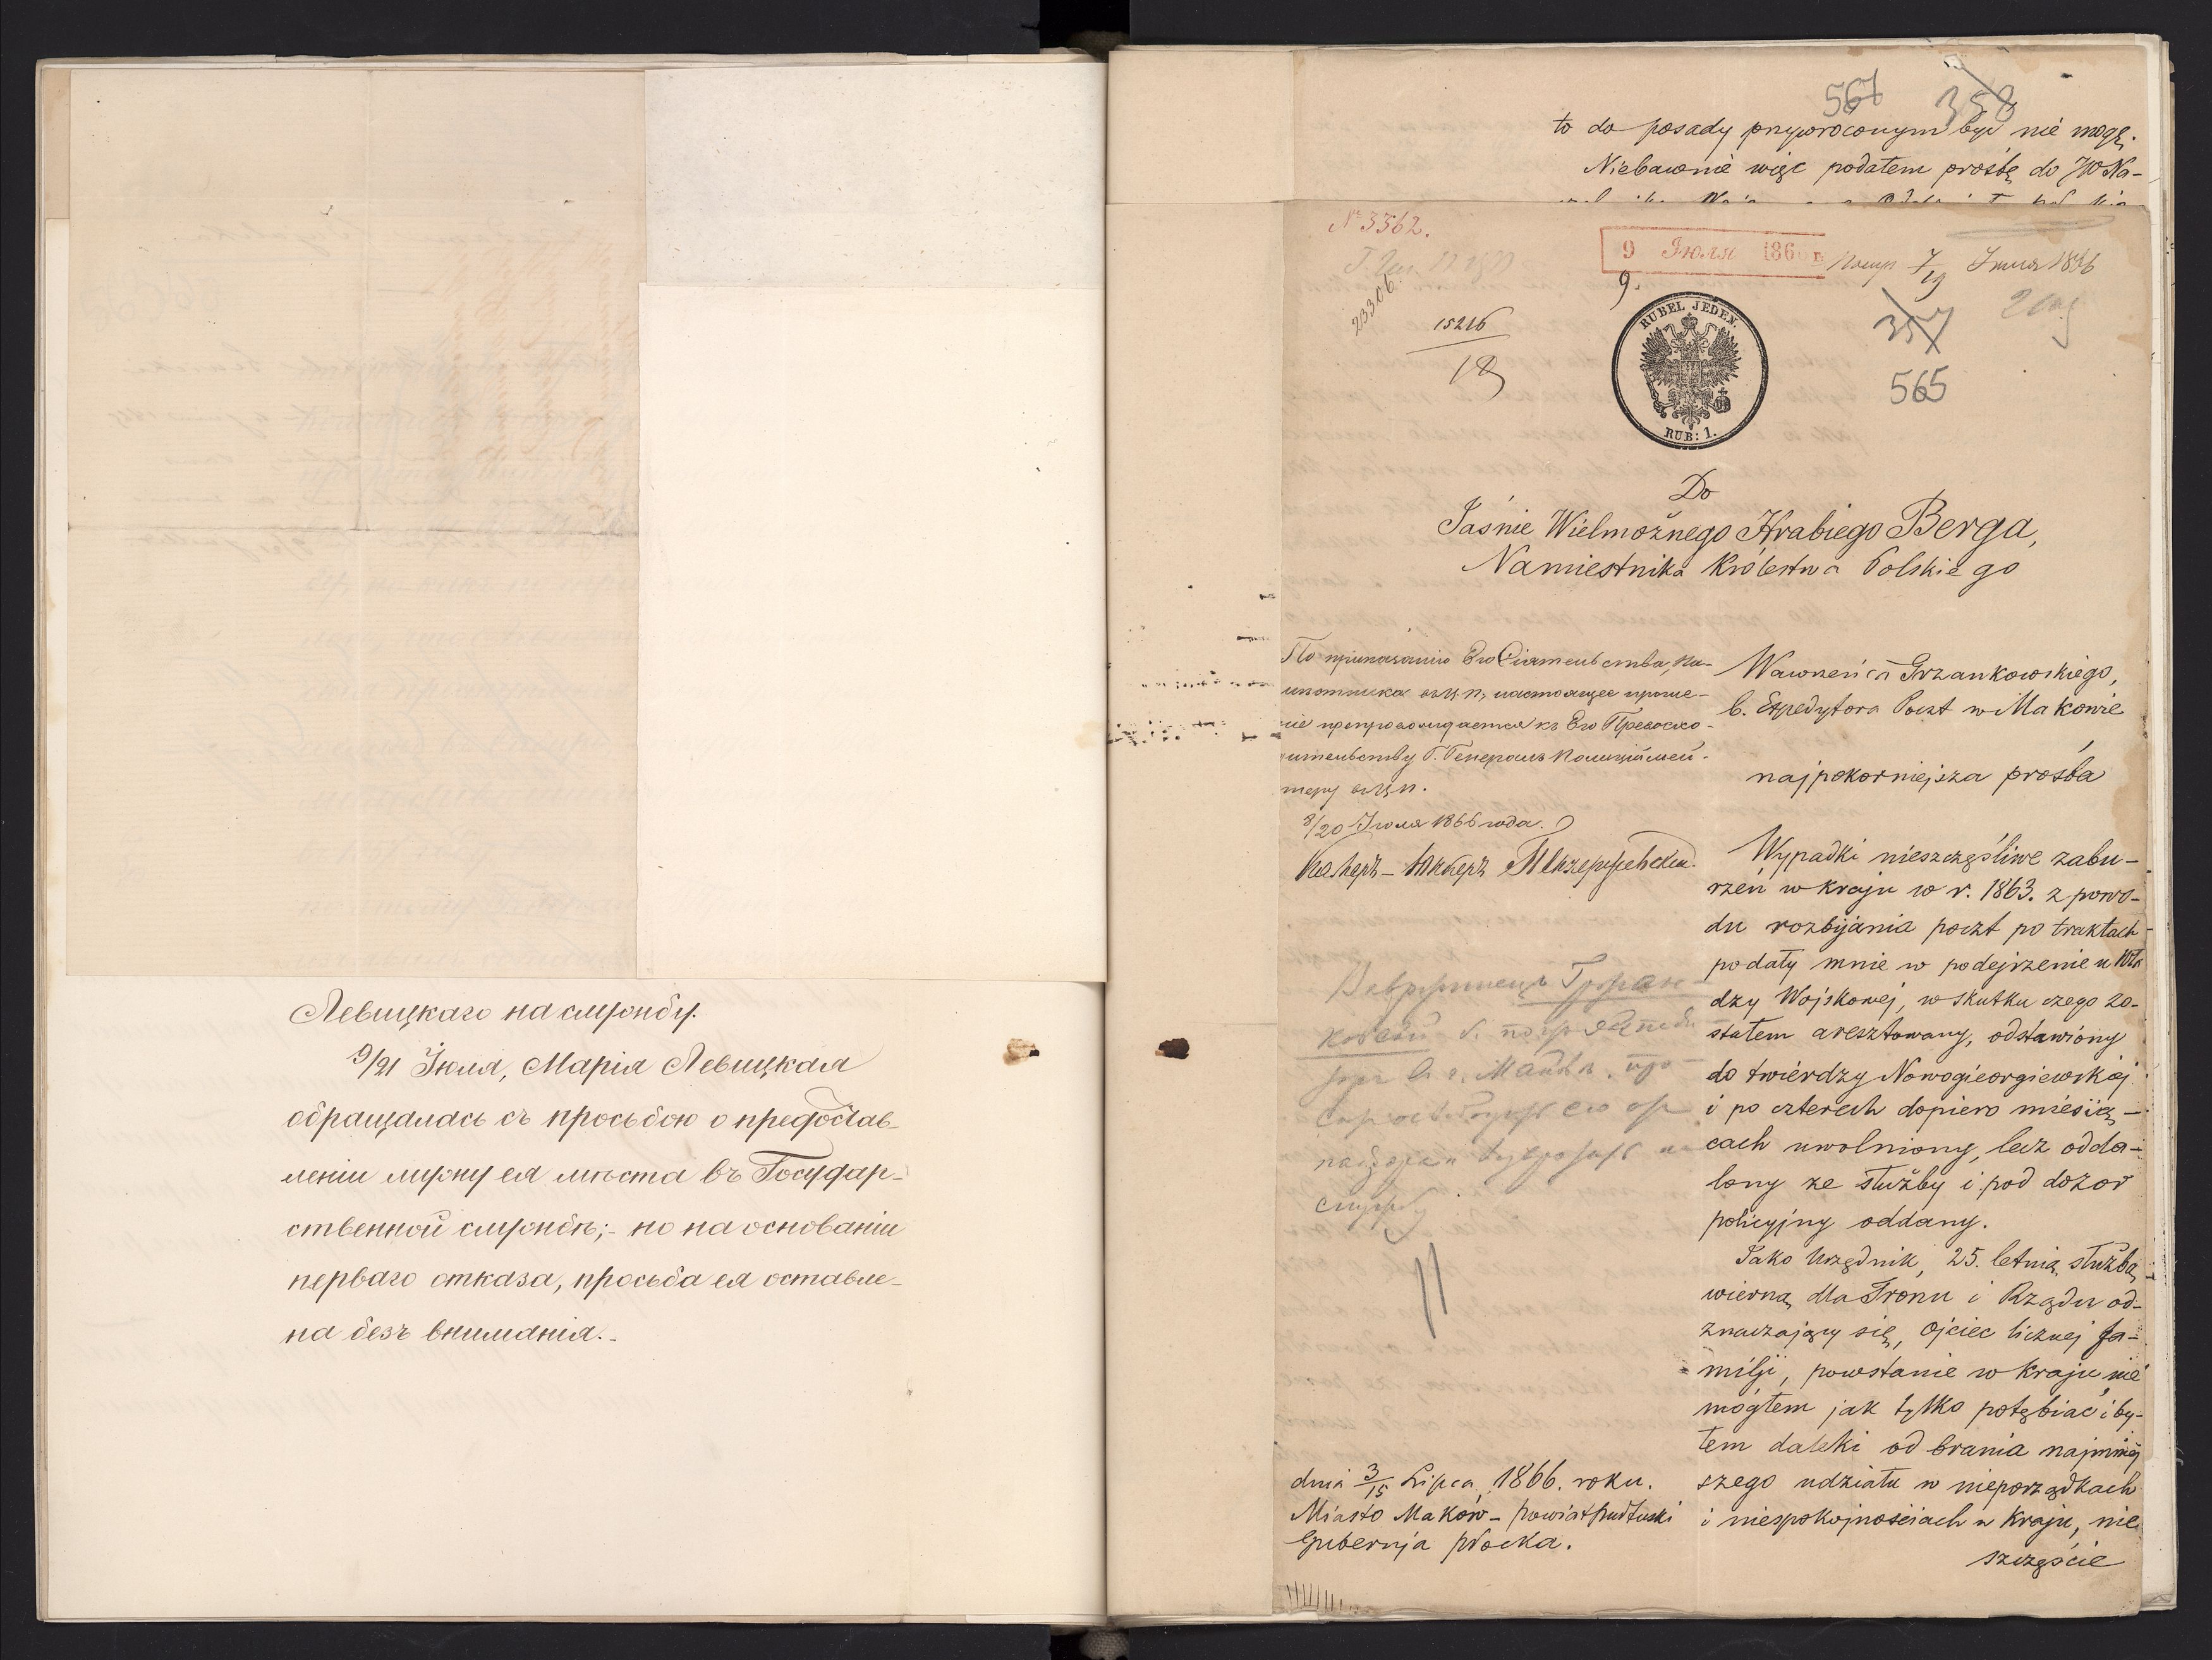 Левицкаго на службу.
9/21 Іюля, Марія Левицкая
обращалась съ просьбою о предостав-
леніи мужу ея мѣста въ Государ-
ственной службѣ;- но на основаніи
перваго отказа, просьба ея оставле-
на безъ вниманія.-
567 358
to do posady przywróconym być nie mogę.
Niebawnie więc podałem prośbę do JW Na-
№ 3362.
9 Іюля 186 г.
7/19 Іюля 1866
9.
23306.
15216
18
RUBEL JEDEN.
RUB: 1.
357
565
Do
Jaśnie Wielmożnego Hrabiego Berga,
Namiestnika Królestwa Polskiego
По приказанію Его Сіятельства, На-
мѣстника въ Ц. П., настоящее проше-
ніе препровождается къ Его Превосхо-
дительству Г. Генералъ Полиціймей-
теру въ Ц. П.
8/20 Іюля 1866 года.
Камеръ-Юнкеръ
Wawrzeńca Grzankowskiego,
b. Expedytora Poczt w Makowie
najpokorniejsza prośba
Wypadki nieszczęśliwe zabu-
rzeń w kraju w r. 1863. z powo-
du rozbijania poczt po traktach
podały mnie w podejrzenie u Wła
dzy Wojskowej, w skutku czego zo-
stałem aresztowany, odstawiony
do twierdzy Nowogieorgiewskiej
i po czterech dopiero miesią-
cach uwolniony, lecz odda-
lony ze służby i pod dozor
policyjny oddany.
Jako Urzędnik, 25. letnią służbą,
wierną dla Tronu i Rządu od-
znaczający się, Ojciec licznej fa-
milji, powstanie w kraju nie
mógłem jak tylko potębiać i by-
łem daleki od brania najmniej
szego udziału w nieporządkach
i niespokojnościach w kraju, nie
szczęście
dnia 3/15 Lipca 1866. roku.
Miasto Maków - powiat pułtuski
Gubernja płocka.